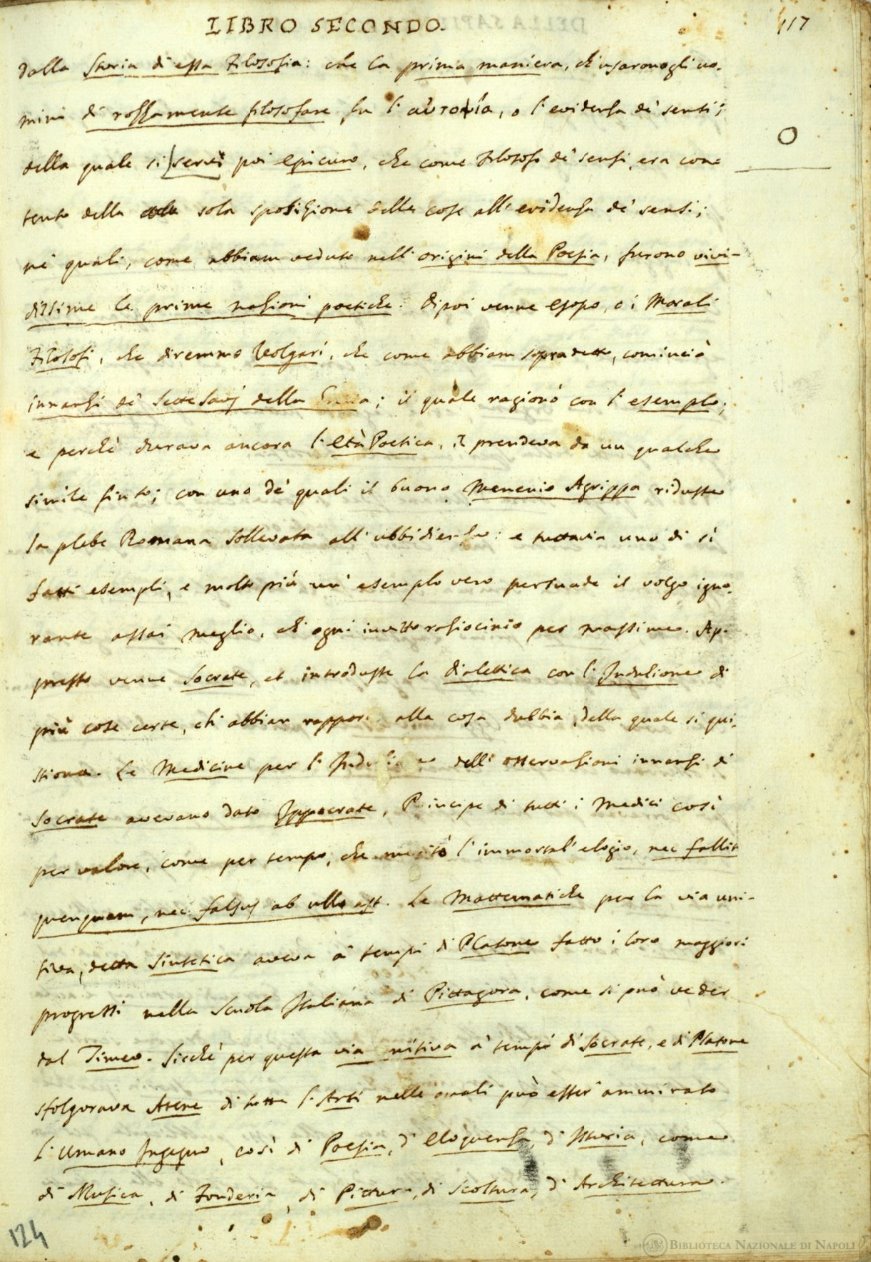 LIBRO SECONDO.
117
dalla Storia di essa Filosofia: che la prima maniera, ch'usarono gli uo-
mini di rozzamente filosofare fu l'αὐτοψία, o l'evidenza de' sensi;
della quale si servì poi Epicuro, che come Filosofo de' sensi, era con-
tento della sola sposizione delle cose all'evidenza de' sensi;
ne' quali, come abbiam veduto nell'origini della Poesia, furono vivi-
dissime le prime nazioni poetiche. Dipoi venne Esopo, o i Morali
Filosofi, che diremmo Volgari, che come abbiam sopra detto, cominciò
innanzi de' Sette Savj della Grecia; il quale ragionò con l'esemplo;
e perchè durava ancora l'età Poetica, il prendeva da un qualche
simile finto; con uno de' quali il buono Menenio Agrippa ridusse
la plebe Romana sollevata all'ubbidienza: e tuttavia uno di sì
fatti esempli, e molto più un'esemplo vero persuade il volgo igno-
rante assai meglio, ch'ogni invitto raziocinio per massime. Ap-
presso venne Socrate, et introdusse la dialettica con l'Induzione di
più cose certe, ch'abbian rapporto alla cosa dubbia, della quale si qui-
stiona. Le Medicine per l'Induzione dell'osservazioni innanzi di
Socrate avevano dato Ippocrate, Principe di tutti i Medici così
per valore, come per tempo, che meritò l'immortal'elogio, nec fallit
quenquam, nec falsus ab ullo est. Le Mattematiche per la via uni-
tiva, detta Sintetica aveva a' tempi di Platone fatto i loro maggiori
progressi nella Scuola Italiana di Pittagora, come si può veder
dal Timeo. Sicchè per questa via unitiva a' tempi di Socrate, e di Platone
sfolgorava Atene di tutte l'Arti nelle quali può esser'ammirato
l'Umano Ingegno, così di Poesia, d'Eloquenza, d'Storia, come
di Musica, di Fonderia, di Pittura, di Scoltura, d'Architettura.
124
BIBLIOTECA NAZIONALE DI NAPOLI